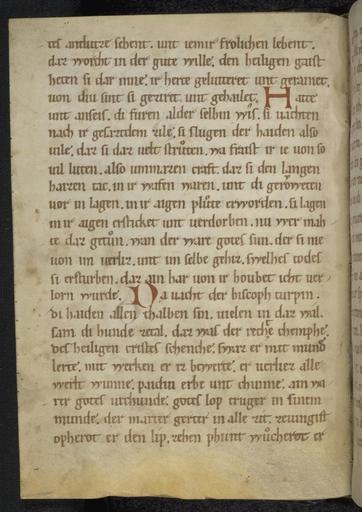 tes antlutze sehent. unt iemir frolichen lebent.
daz worcht in der gute wille. den heiligen gaist
heten si dar inne. ir herce geluteret unt gerainet.
von diu sint si geziret unt gehailet. Hatte
unt anseis. di furen alder selbin wis. si uachten
nach ir gesazedem zile. si slugen der haiden also
uile. daz si daz uelt ströten. wa fraist ir ie uon so
uil luten. also ummazen craft. daz si den langen
haizen tac. in ir wafen waren. unt di gerŏweten
vor in lagen. in ir aigen plůte erworden. si lagen
in ir aigen ersticket unt verdorben. nu wer mah
te daz getůn. wan der ware gotes sun. der si nie
von im verliez. unt im selbe gehiz. swelhes todes
si ersturben. daz ain har von ir houbet icht ver
lorn wurde. Da uacht der biscoph turpin.
di haiden allen thalben sin. uielen in daz wal.
sam di hunde zetal. daz was der rechte chemphe.
des heiligen cristes schenche. swaz er mit mund
lerte. mit werken er iz bewerte. er verliez alle
werlt wunne. paidiu erbe unt chunne. ain wa
rer gotes urchunde. gotes lop truger in sinem
munde. der marter gerter in alle zit. zeuungist
opherot er den lip. zehen phunt wůcherot er